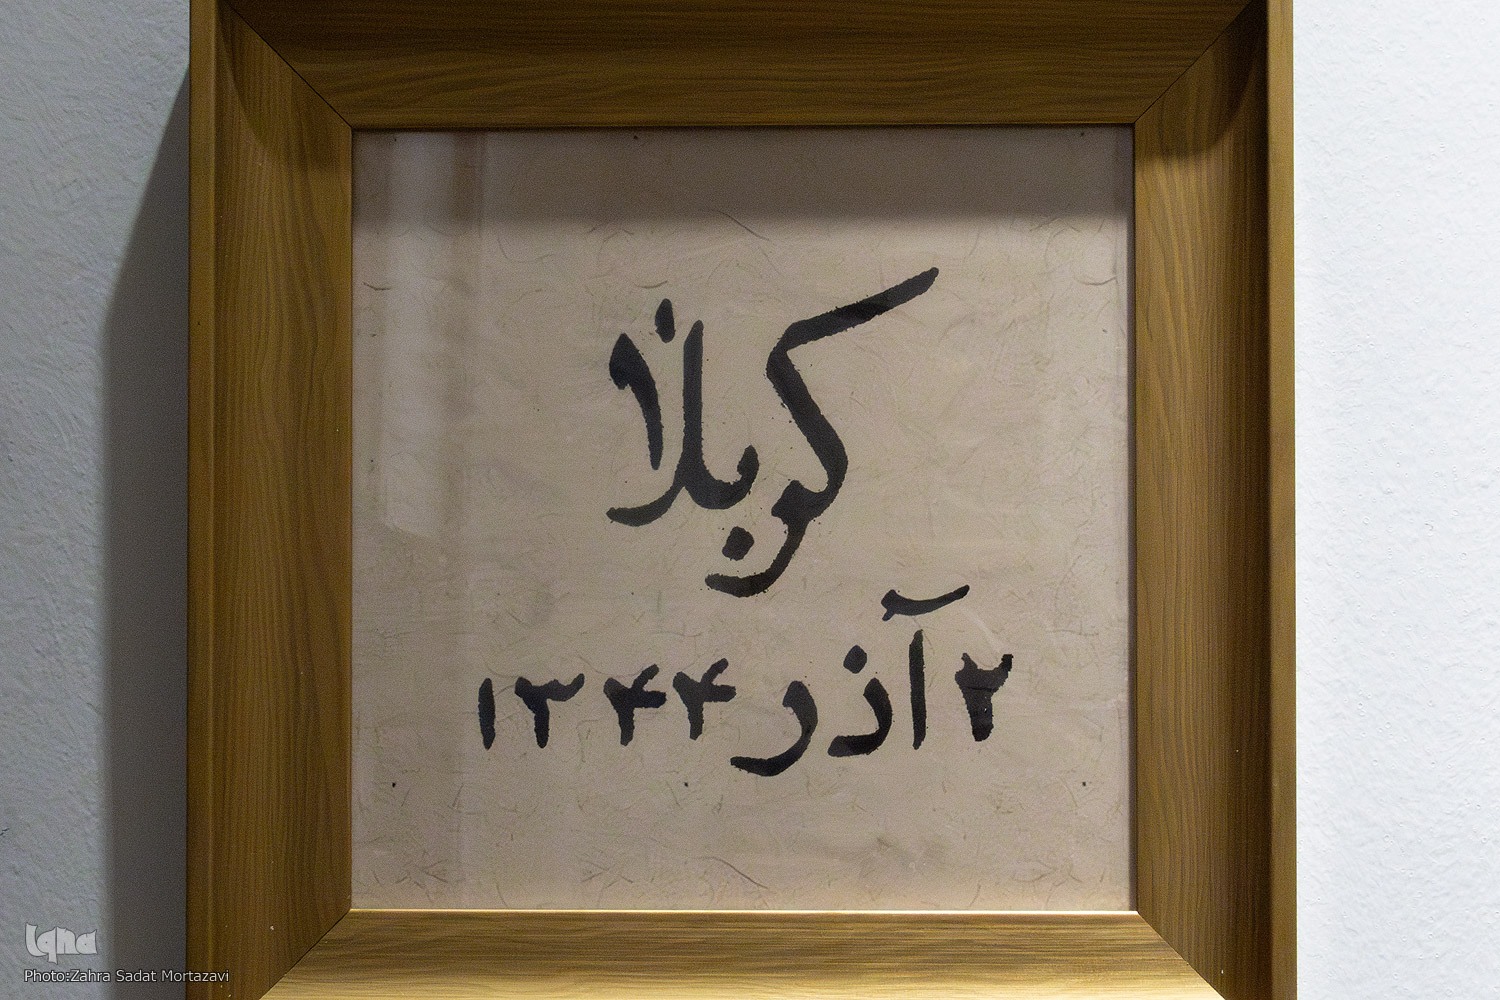 کربلا
۲ آذر ۱۳۴۴
Iqna
Photo:Zahra Sadat Mortazavi